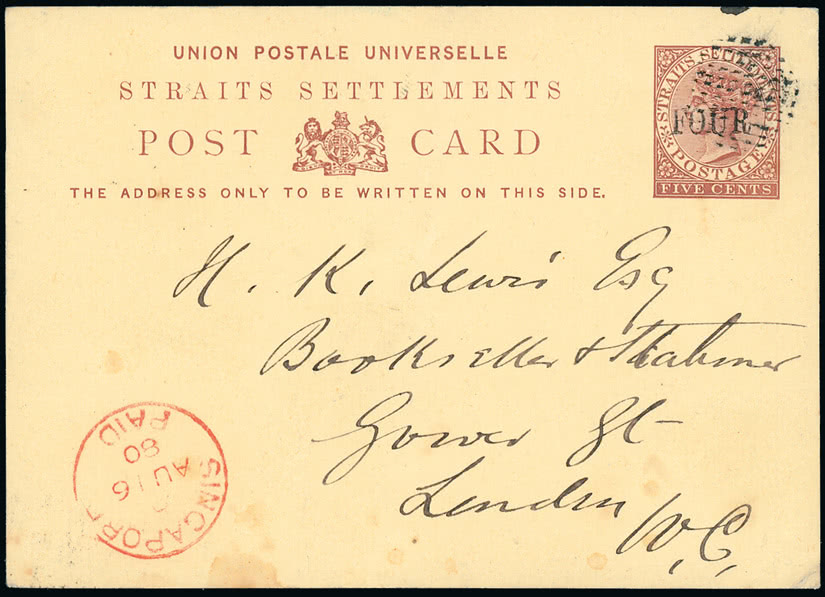 UNION POSTALE UNIVERSELLE
STRAITS SETTLEMENTS
POST CARD
THE ADDRESS ONLY TO BE WRITTEN ON THIS SIDE.
STRAITS SETTLEMENTS
FOUR
POSTAGE
FIVE CENTS
H. K. Lewis Esq
Bookseller &
Gower St
London
W.C.
SINGAPORE
AU 16
80
PAID